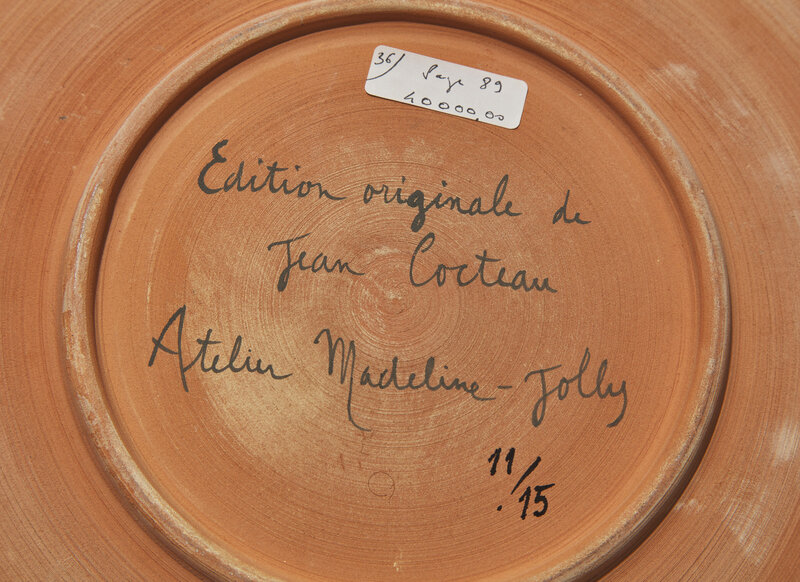 36) Page 89
40000,00
Edition originale de
Jean Cocteau
Atelier Madeline-Jolly
11/15